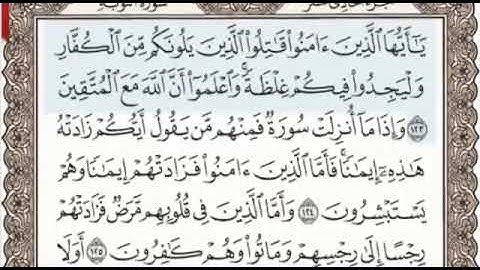 سورة التوبة
يَٰٓأَيُّهَا ٱلَّذِينَ ءَامَنُوا۟ قَٰتِلُوا۟ ٱلَّذِينَ يَلُونَكُم مِّنَ ٱلْكُفَّارِ
وَلْيَجِدُوا۟ فِيكُمْ غِلْظَةً ۚ وَٱعْلَمُوٓا۟ أَنَّ ٱللَّهَ مَعَ ٱلْمُتَّقِينَ
١٢٣ وَإِذَا مَآ أُنزِلَتْ سُورَةٌ فَمِنْهُم مَّن يَقُولُ أَيُّكُمْ زَادَتْهُ
هَٰذِهِۦٓ إِيمَٰنًا ۚ فَأَمَّا ٱلَّذِينَ ءَامَنُوا۟ فَزَادَتْهُمْ إِيمَٰنًا وَهُمْ
يَسْتَبْشِرُونَ ١٢٤ وَأَمَّا ٱلَّذِينَ فِى قُلُوبِهِم مَّرَضٌ فَزَادَتْهُمْ
رِجْسًا إِلَىٰ رِجْسِهِمْ وَمَاتُوا۟ وَهُمْ كَٰفِرُونَ ١٢٥ أَوَلَا